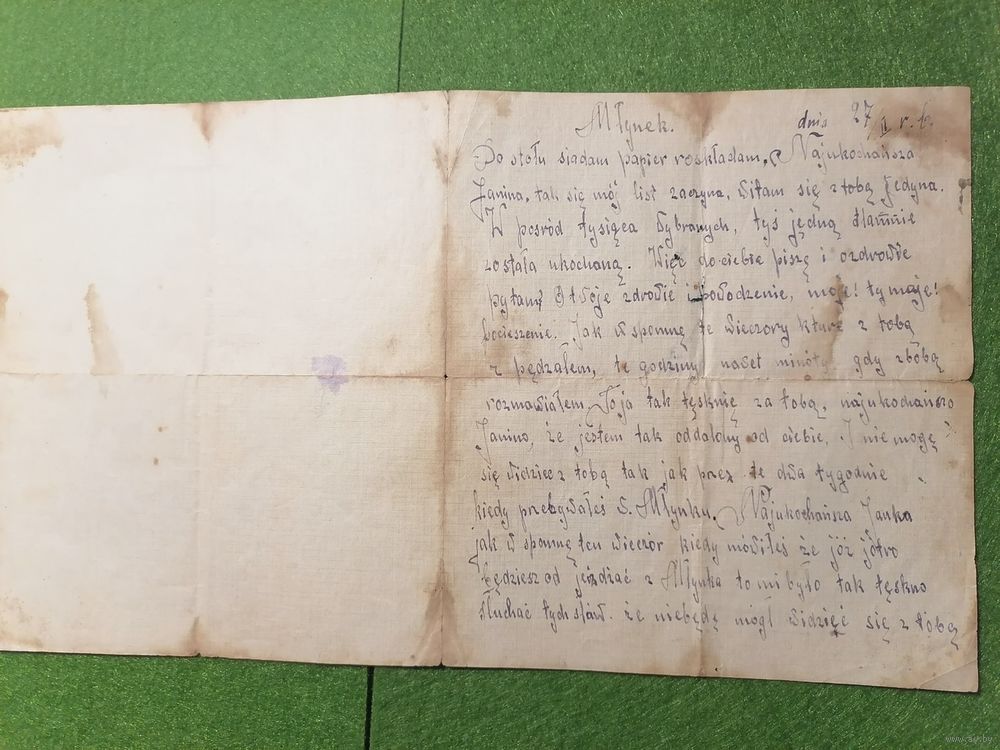 Młynek. dnia 27/II r. b.
Do stołu siadam papier roskładam. Najukochańsza
Janina, tak się mój list zaczyna, Witam się z tobą Jedyna.
W pośród tysięca Wybranych, tyś jedną dlamnie
została ukochaną. Więc do ciebie piszę i ozdrowie
pytam? O twoje zdrowie i powodzenie, moje! ty moje!
pocieszenie. Jak w spomnę te wieczory kture z tobą
z pędzałem, te godziny nawet minóty gdy stobą
rozmawiałem, To ja tak tęsknię za tobą, najukochańszo
Janino, że jestem tak oddalony od ciebie, I nie mogę
się widzieć z tobą tak jak przez te dwa tygodnie
kiedy przebywałeś w Młynku. Najukochańsza Janka
jak w spomnę ten wieczór kiedy mówiłeś że józ jótro
będziesz od jeżdzać z Młynka to mi było tak tęskno
słuchać tych słów. że niebędę mógł widzieć się z tobą
www.ay.by